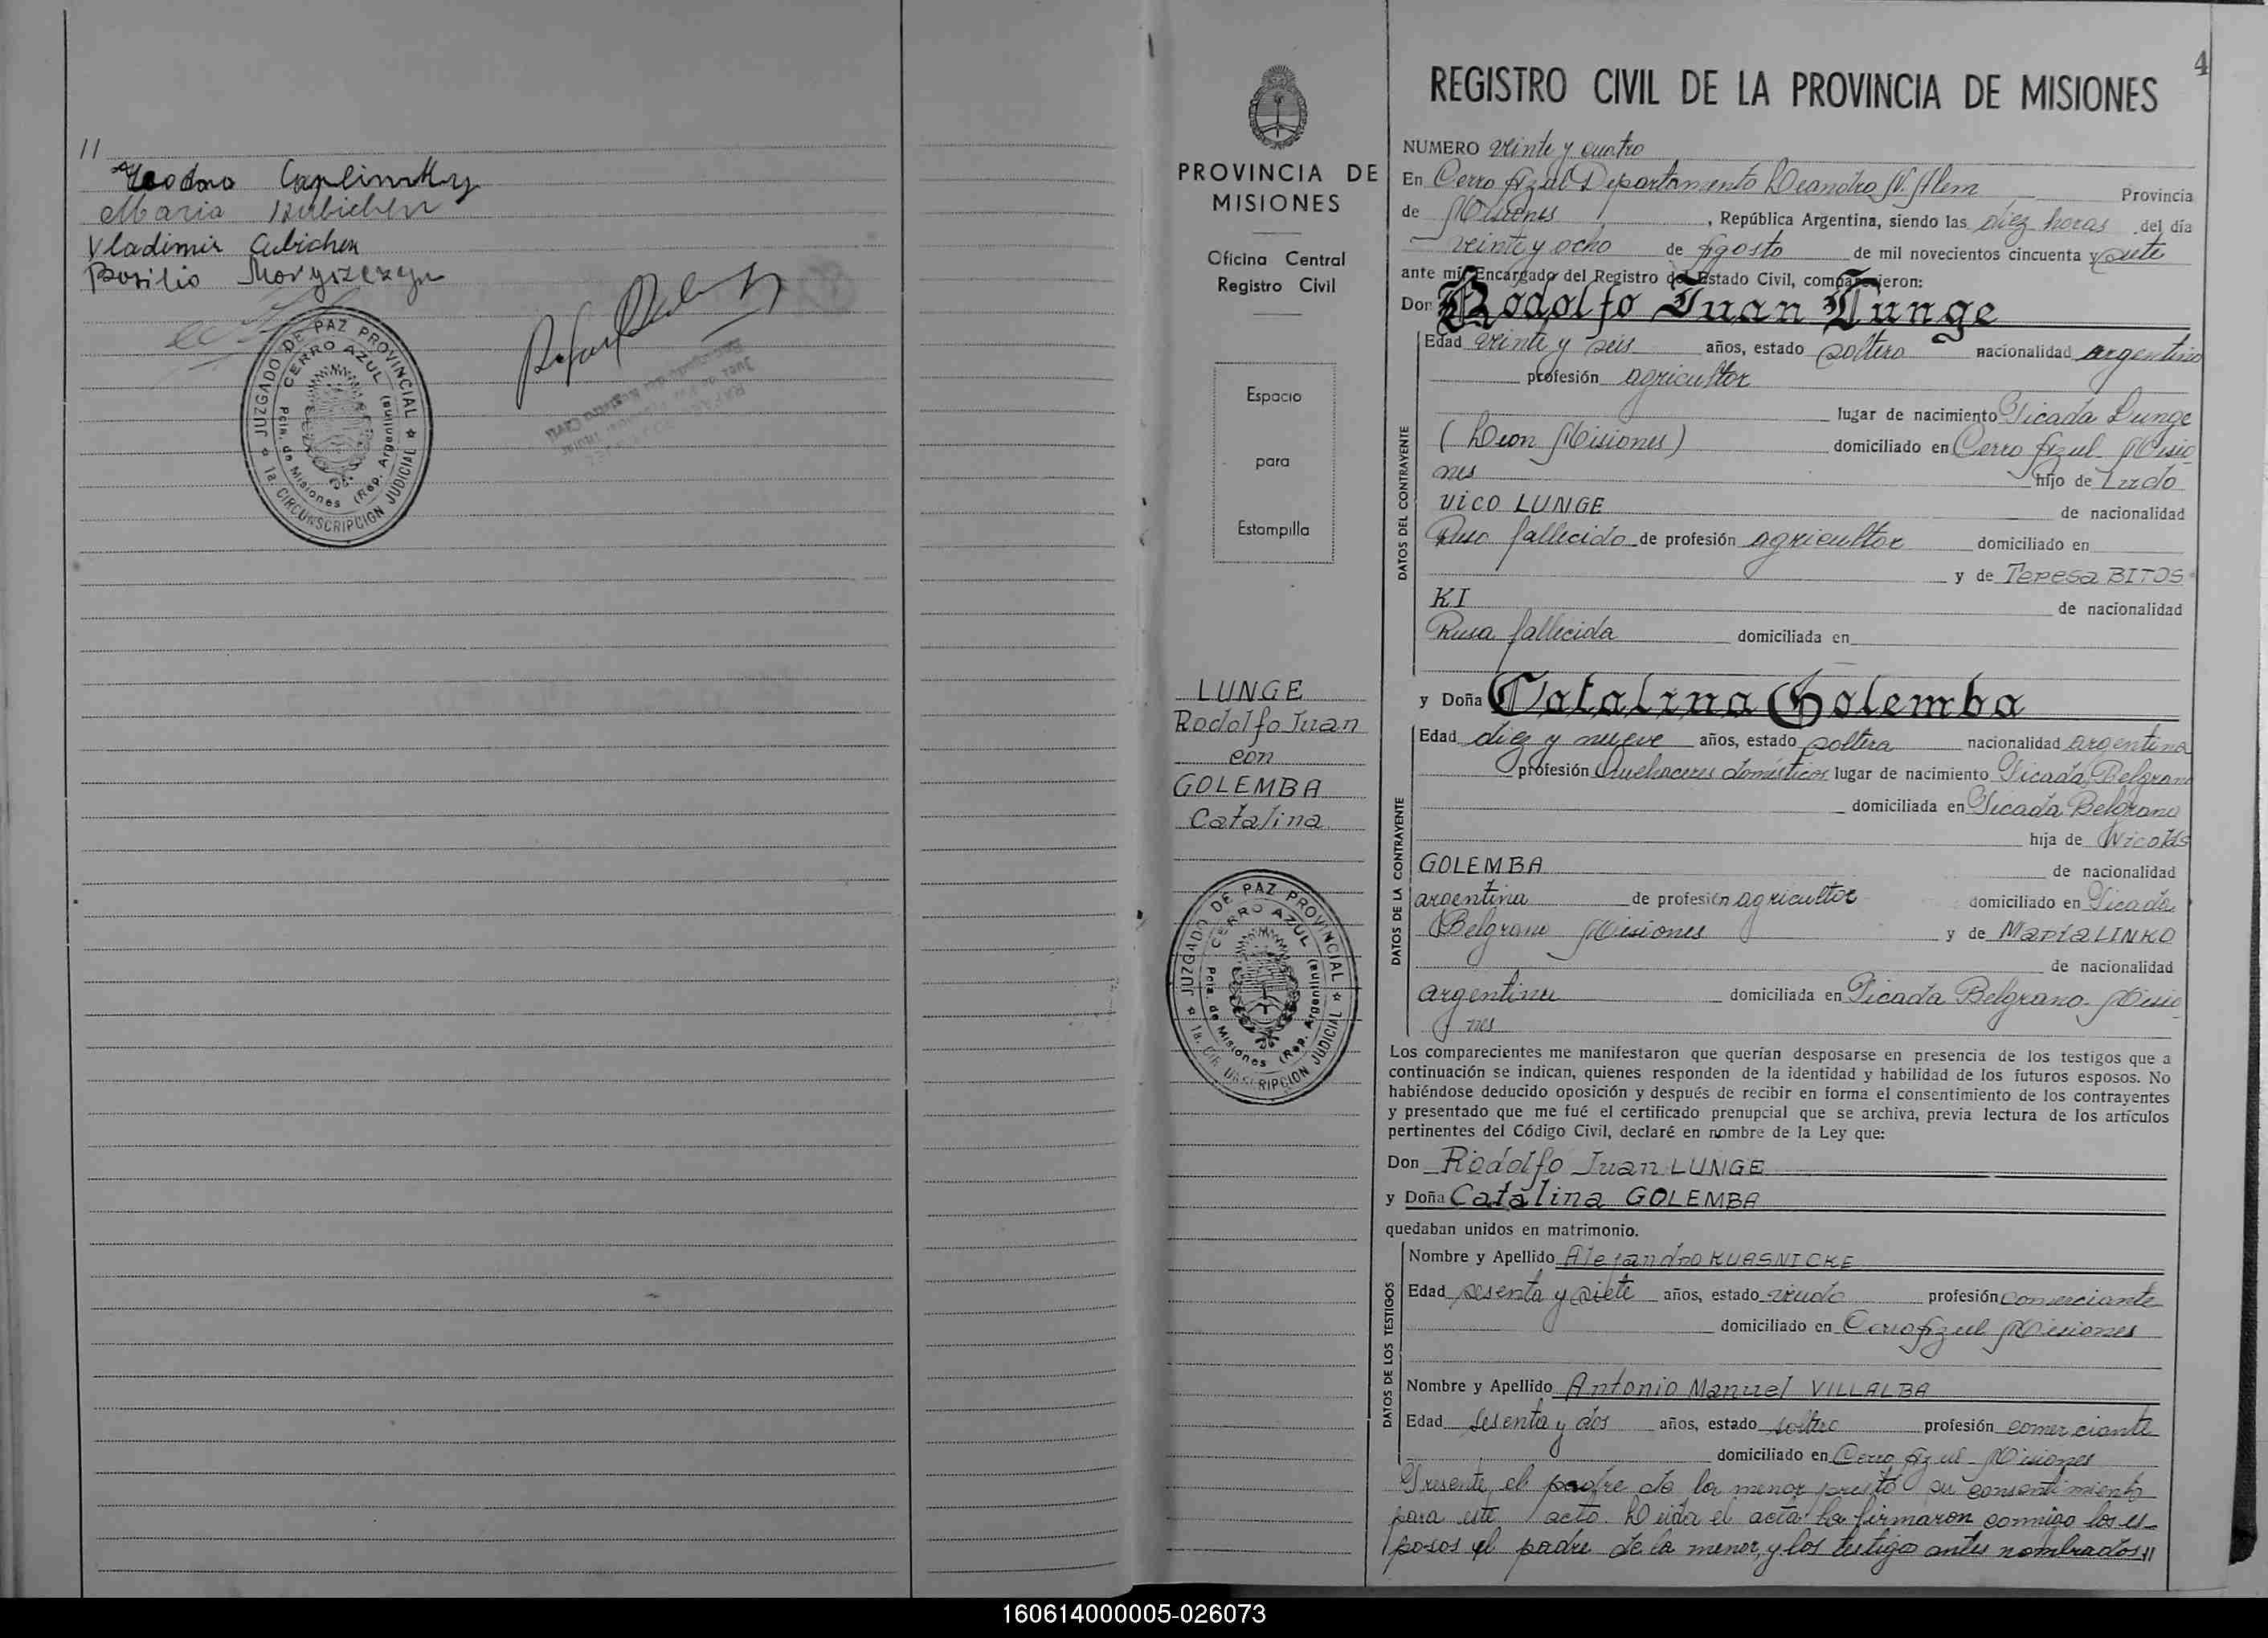 //
Teodoro Caplinsky
Maria Kubichen
Vladimir Cubichen
Basilio
JUZGADO DE PAZ PROVINCIAL
CERRO AZUL
Pcia. de Misiones (Rep. Argentina)
1a. CIRCUNSCRIPCION JUDICIAL
4
PROVINCIA DE
MISIONES
Oficina Central
Registro Civil
Espacio
para
Estampilla
LUNGE
Rodolfo Juan
con
GOLEMBA
Catalina
JUZGADO DE PAZ PROVINCIAL
CERRO AZUL
Pcia. de Misiones (Rep. Argentina)
1a. CIRCUNSCRIPCION JUDICIAL
REGISTRO CIVIL DE LA PROVINCIA DE MISIONES
NUMERO veinte y cuatro
En Cerro Azul Departamento Leandro N. Alem Provincia
de Misiones, República Argentina, siendo las diez horas del día
veinte y ocho de Agosto de mil novecientos cincuenta y siete
ante mi, Encargado del Registro del Estado Civil, comparecieron:
Don Rodolfo Juan Lunge
DATOS DEL CONTRAYENTE
Edad veinte y seis años, estado soltero nacionalidad argentino
profesión agricultor
lugar de nacimiento Picada Lunge
(Leon Misiones) domiciliado en Cerro Azul Misio
nes hijo de Ludo
vico LUNGE de nacionalidad
Ruso fallecido de profesión agricultor domiciliado en
y de Teresa BITOS
KI de nacionalidad
Rusa fallecida domiciliada en
y Doña Catalina Golemba
DATOS DE LA CONTRAYENTE
Edad diez y nueve años, estado soltera nacionalidad argentina
profesión Quehaceres domésticos lugar de nacimiento Picada Belgrano
domiciliada en Picada Belgrano
hija de Nicolás
GOLEMBA de nacionalidad
argentina de profesión agricultor domiciliado en Picada
Belgrano Misiones y de Maria LINKO
de nacionalidad
argentina domiciliada en Picada Belgrano - Misio
nes
Los comparecientes me manifestaron que querían desposarse en presencia de los testigos que a
continuación se indican, quienes responden de la identidad y habilidad de los futuros esposos. No
habiéndose deducido oposición y después de recibir en forma el consentimiento de los contrayentes
y presentado que me fué el certificado prenupcial que se archiva, previa lectura de los artículos
pertinentes del Código Civil, declaré en nombre de la Ley que:
Don Rodolfo Juan LUNGE
y Doña Catalina GOLEMBA
quedaban unidos en matrimonio.
DATOS DE LOS TESTIGOS
Nombre y Apellido Alejandro KUASNICKE
Edad sesenta y siete años, estado viudo profesión comerciante
domiciliado en Cerro Azul Misiones
Nombre y Apellido Antonio Manuel VILLALBA
Edad sesenta y dos años, estado soltero profesión comerciante
domiciliado en Cerro Azul - Misiones
Presente el padre de la menor prestó su consentimiento
para este acto. Leida el acta la firmaron conmigo los es-
posos el padre de la menor, y los testigo antes nombrados //
160614000005-026073